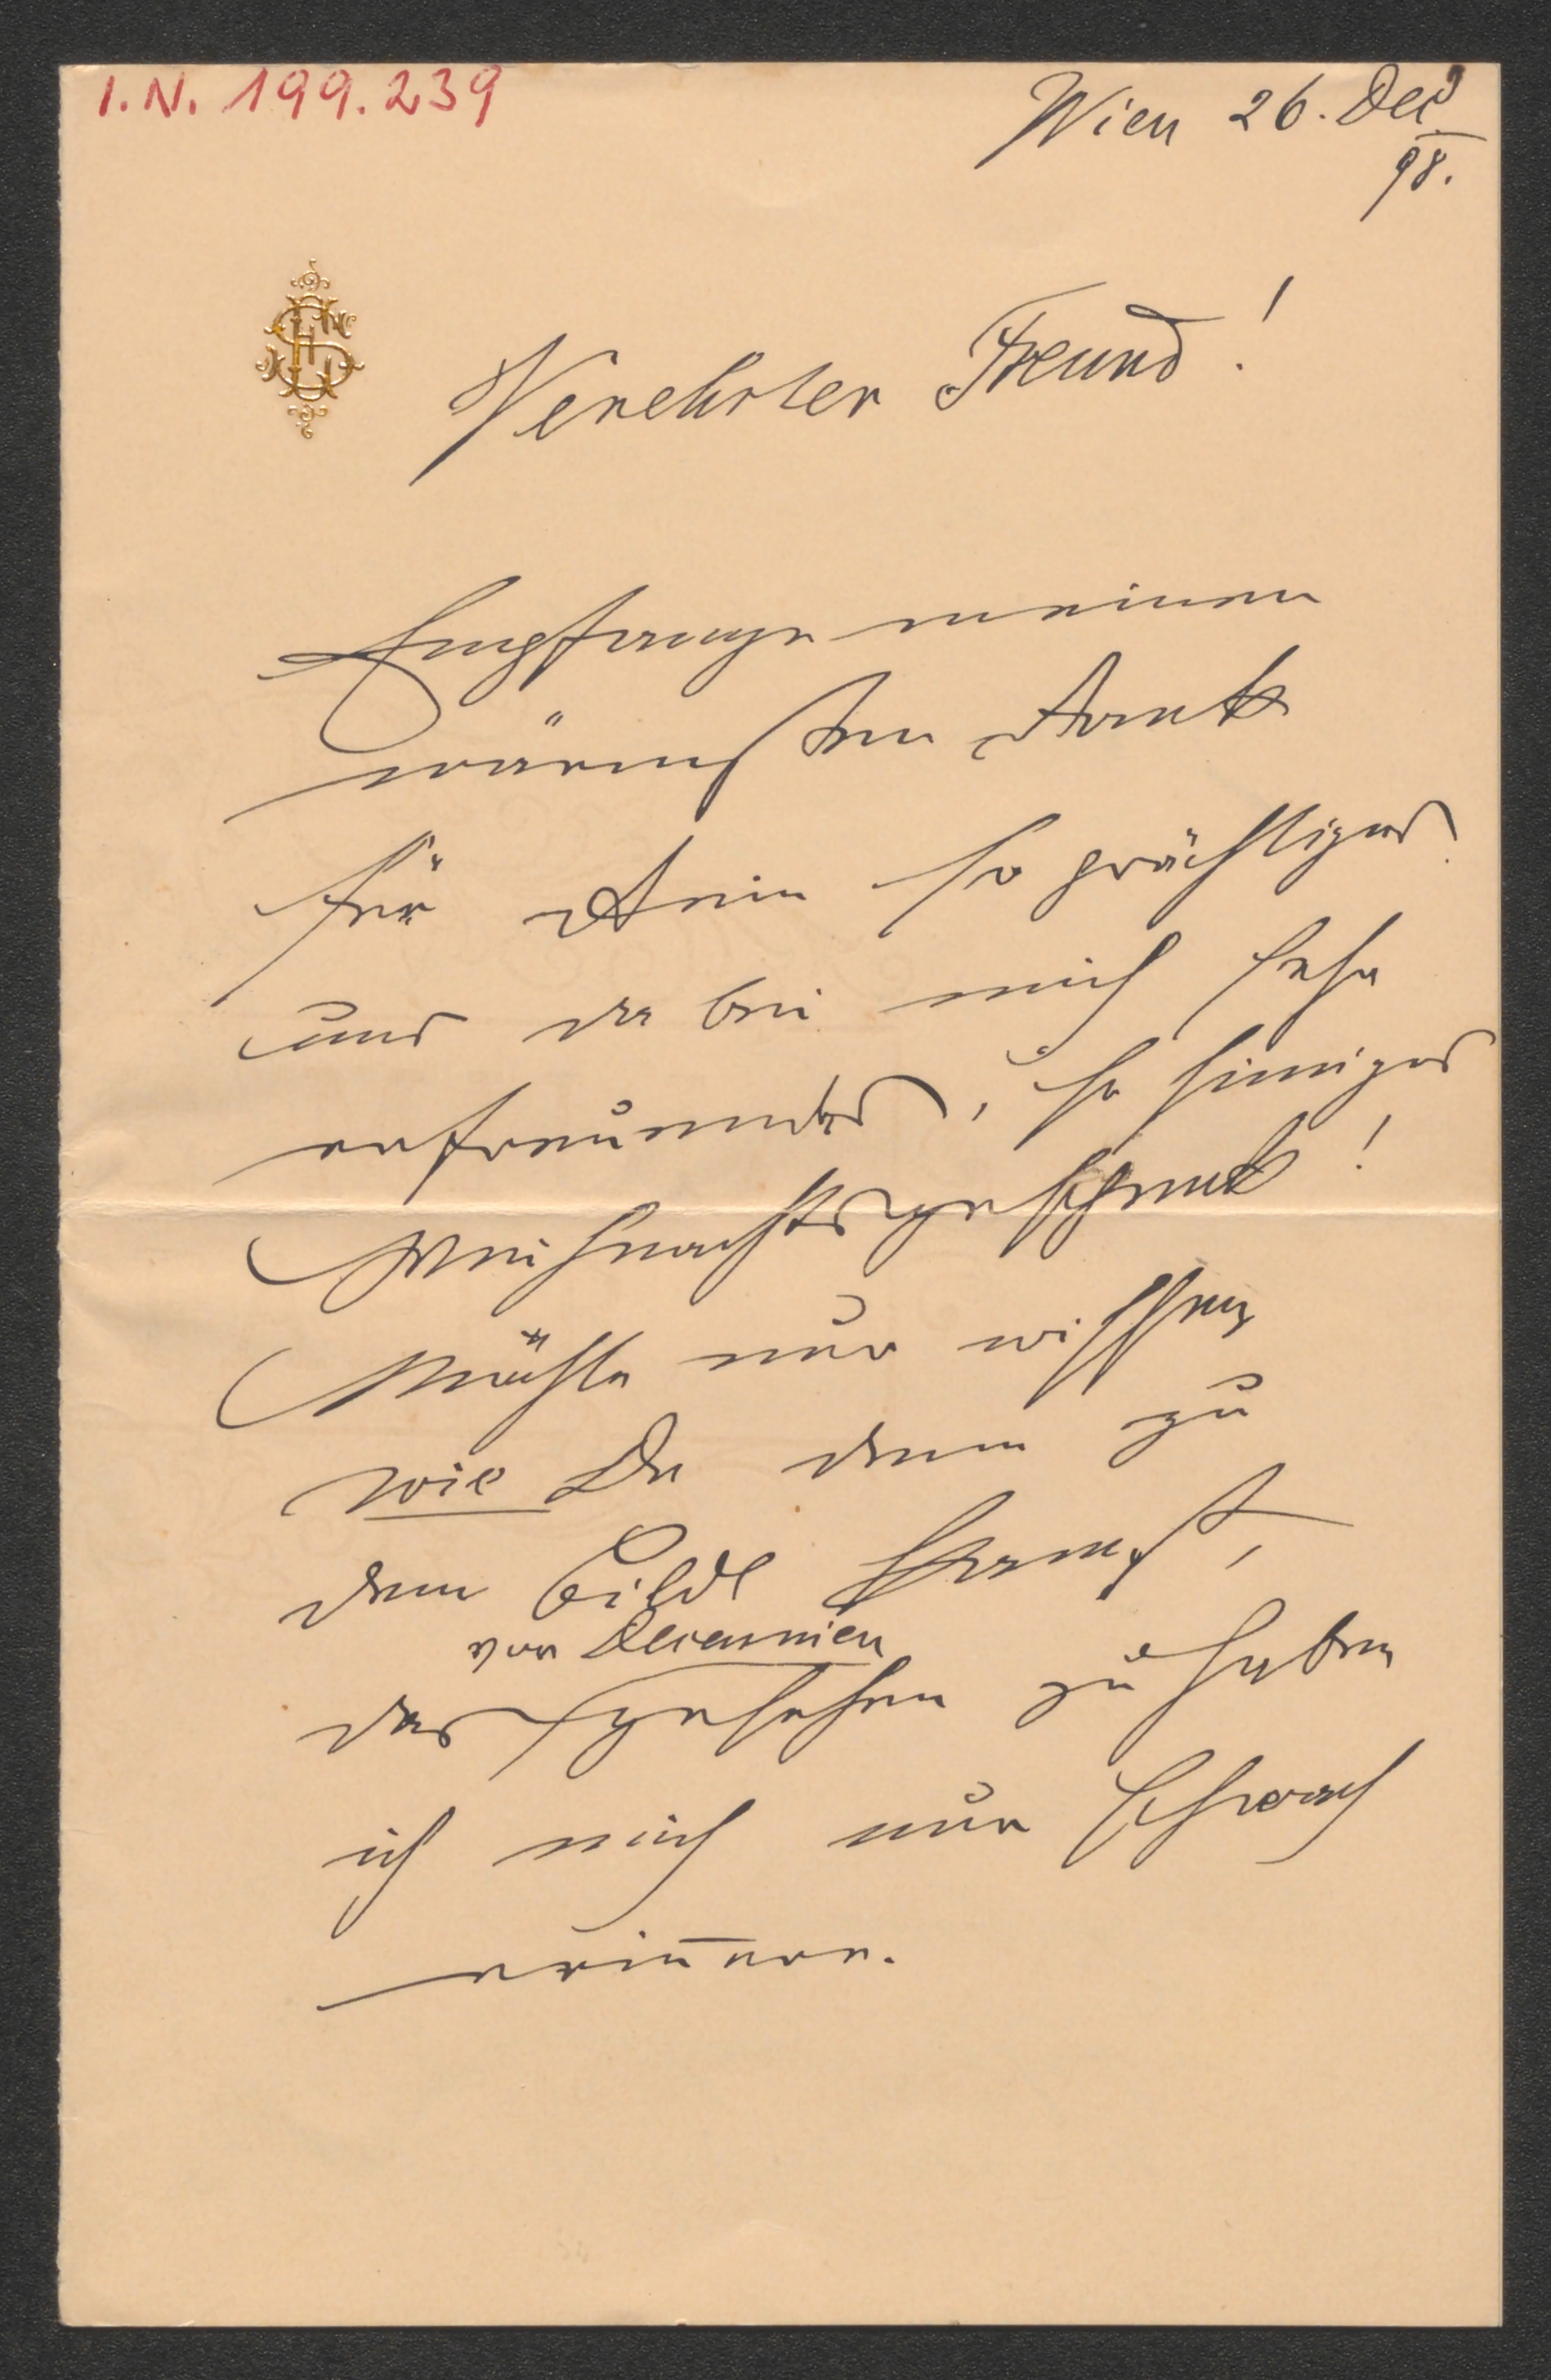 I.N. 199.239
Wien 26. Dec
98.
Verehrter Freund!
Empfange meinen
wärmsten Dank
für Dein so prächtiges
und da bei mich sehr
erfreuendes, so sinniges
Weihnachtsgeschenk!
Möchte nur wissen
wie Du denn zu
dem Bilde kamst,
vor Decennien
das gesehen zu haben
ich mich nur schwach
erin̄ere.